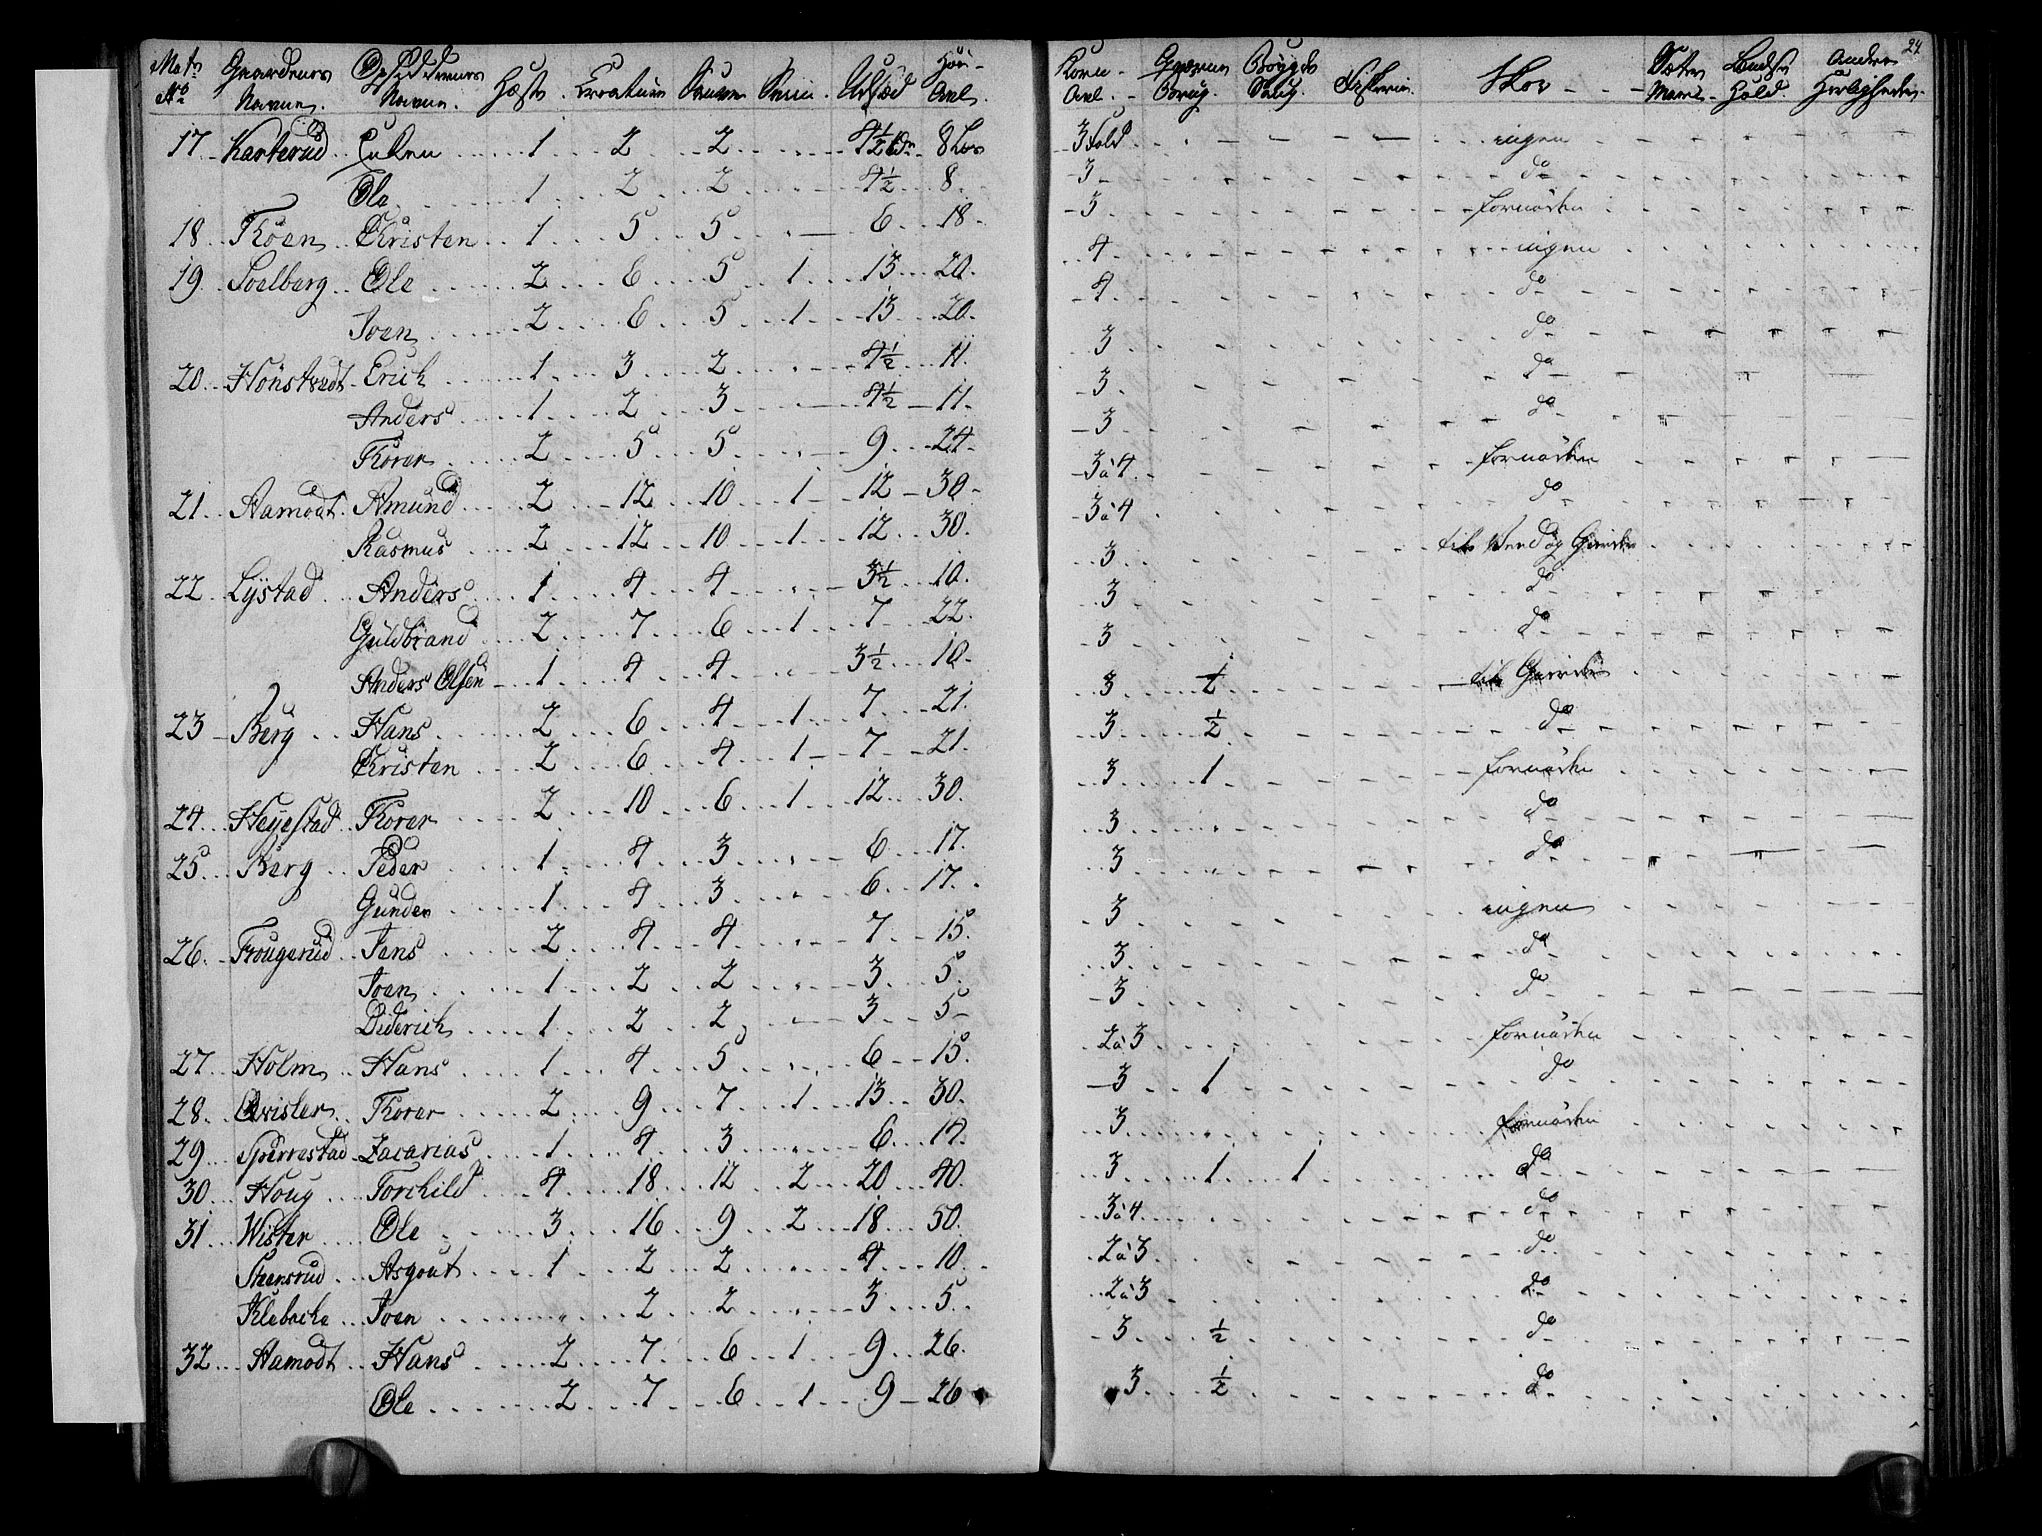 24
Mat: No Gaardens Navne. Opsiddernes Navne. Heste Creature Sauer Sviin. Udsæd Höe-Avl. Korn-Avl. Qværne-brug. Böÿgde Saug. Fiskerie. Skov Sæter Havn-Hold. Andre Herligheder.
17 Karterud Enken 1 2 2 4½ Tdr 8 Læs 3 Fold ingen
Ole 1 2 2 4½ 8 3 do
18 Töen Christen 1 5 5 6 18 3 fornöden
19 Soelberg Ole 2 6 5 1 13 20 4 ingen
Joen 2 6 5 1 13 20 4 do
20 Hönstvedt Erich 1 3 2 4½ 11 3 do
Anders 1 2 3 4½ 11 3 do
Thorer 2 5 5 9 24 3 do
21 Aamodt Amund 2 12 10 1 12 30 3 à 4 fornöden
Rasmus 2 12 10 1 12 30 3 à 4 do
22 Lÿstad Anders 1 4 4 3½ 10 3 til Veed og Gierder
Guldbrand 2 7 6 1 7 22 3 do
Anders Olsen 1 4 4 3½ 10 3 do
23 Berg Hans 2 6 4 1 7 21 3 ½ til Gierder
Christen 2 6 4 1 7 21 3 ½ do
24 Heÿestad Thorer 2 10 6 1 12 30 3 1 fornöden
25 Berg Peder 1 4 3 6 17 3 do
Gunder 1 4 3 6 17 3 do
26 Frougerud Jens 2 4 4 7 15 3 ingen
Joen 1 2 2 3 5 3 do
Diderich 1 2 2 3 5 3 do
27 Holm Hans 1 4 5 6 15 2 à 3 fornöden
28 Qvisler Thorer 2 9 7 1 13 30 3 1 do
29 Sperrestad Zacarias 1 4 3 6 14 3 fornöden
30 Houg Torchild 4 18 12 2 20 40 3 1 1 do
31 Wister Ole 3 16 9 2 18 50 3 à 4 do
Steensrud Asgout 1 2 2 4 10 2 à 3 do
Klebacke Joen 2 2 3 5 2 à 3 do
32 Aamodt Hans 2 7 6 1 9 26 3 ½ do
Ole 2 7 6 1 9 26 3 ½ do